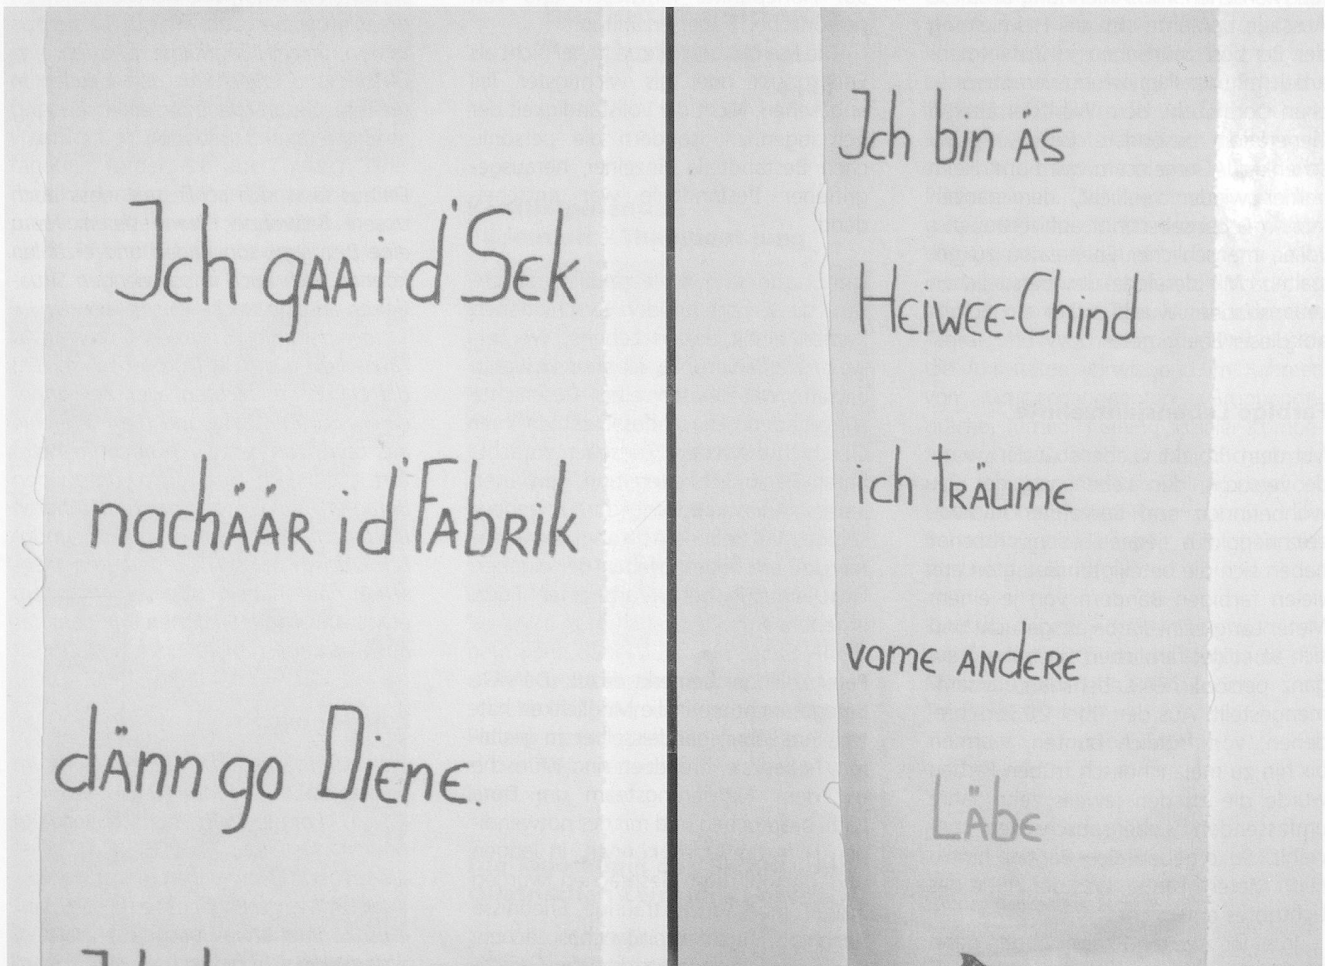 Ich gaa i d'Sek
nachäär i d'Fabrik
dänn go Diene.
Ich bin äs
Heiwee-Chind
ich träume
vome andere
Läbe